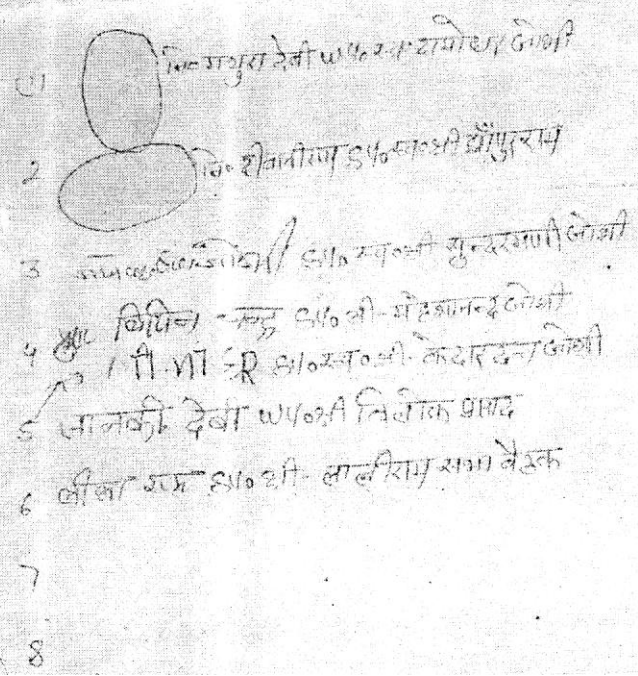 01 नि० मथुरा देवी W/o स्व० दामोधर जोशी
2 नि० शीवानीराम S/o स्व० श्री
3 S/o स्व० श्री सुन्दरमणी जोशी
4 विपिन चन्द्र S/o श्री- महेशानन्द जोशी
S/o स्व० श्री- केदार दत्त जोशी
5 जानकी देवी W/o श्री त्रिलोक प्रसाद
6 लीला राम S/o श्री- लालीराम सभा बैठक
7
8